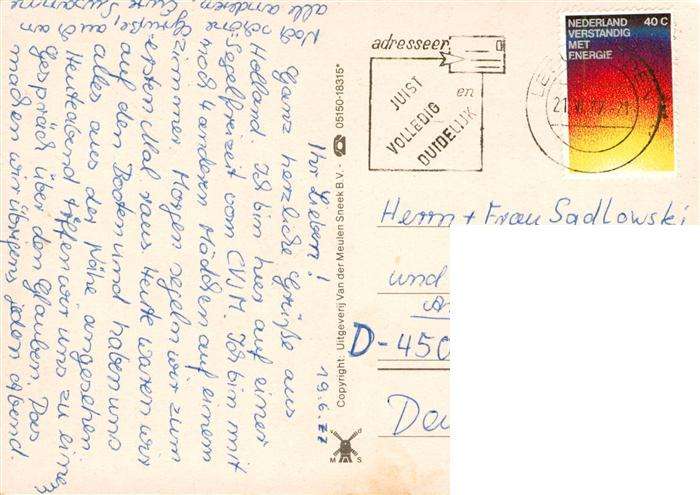 Ihr Lieben! 19.6.77
Ganz herzliche Grüße aus
Holland. Ich bin hier auf einer
Segelfreizeit vom CVJM. Ich bin mit
noch 4 anderen Mädchen auf einem
Zimmer. Morgen segeln wir zum
ersten Mal raus. Heute waren wir
auf den Booten und haben uns
alles aus der Nähe angesehen.
Heute abend treffen wir uns zu einem
Gespräch über den Glauben. Das
machen wir übrigens jeden Abend.
Noch schöne Grüße, auch an
alle anderen, Eure Susanne
Copyright: Uitgeverij Van der Meulen Sneek B.V. - 05150-18315*
M S
adresseer
JUIST
VOLLEDIG
en
DUIDELIJK
NEDERLAND 40 C
VERSTANDIG
MET
ENERGIE
Herrn + Frau Sadlowski
und
D-450